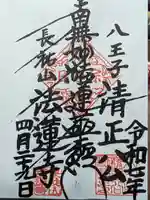 八王子 清正公
南無妙法蓮華経
長祐山 法蓮寺
令和三年
四月二九日